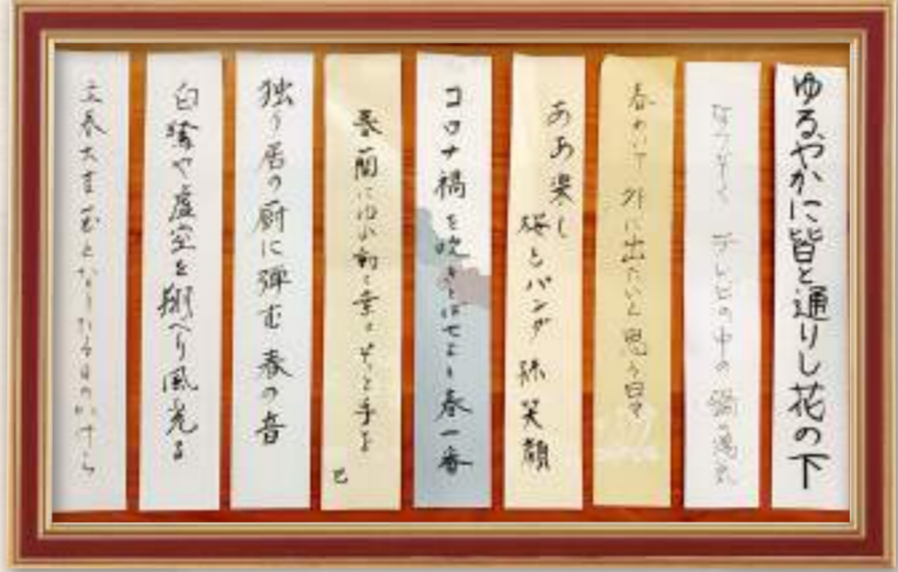 ゆるやかに皆と通りし花の下
テレビの中の鍋の湯気
春めいて外に出たいと思う日々
ああ楽し
桜とパンダ孫笑顔
コロナ禍を吹きとばせよ春一番
春蘭にゆれ動く
独り居の厨に弾む春の音
白鷺や虚空を翔へり風光る
立春大吉